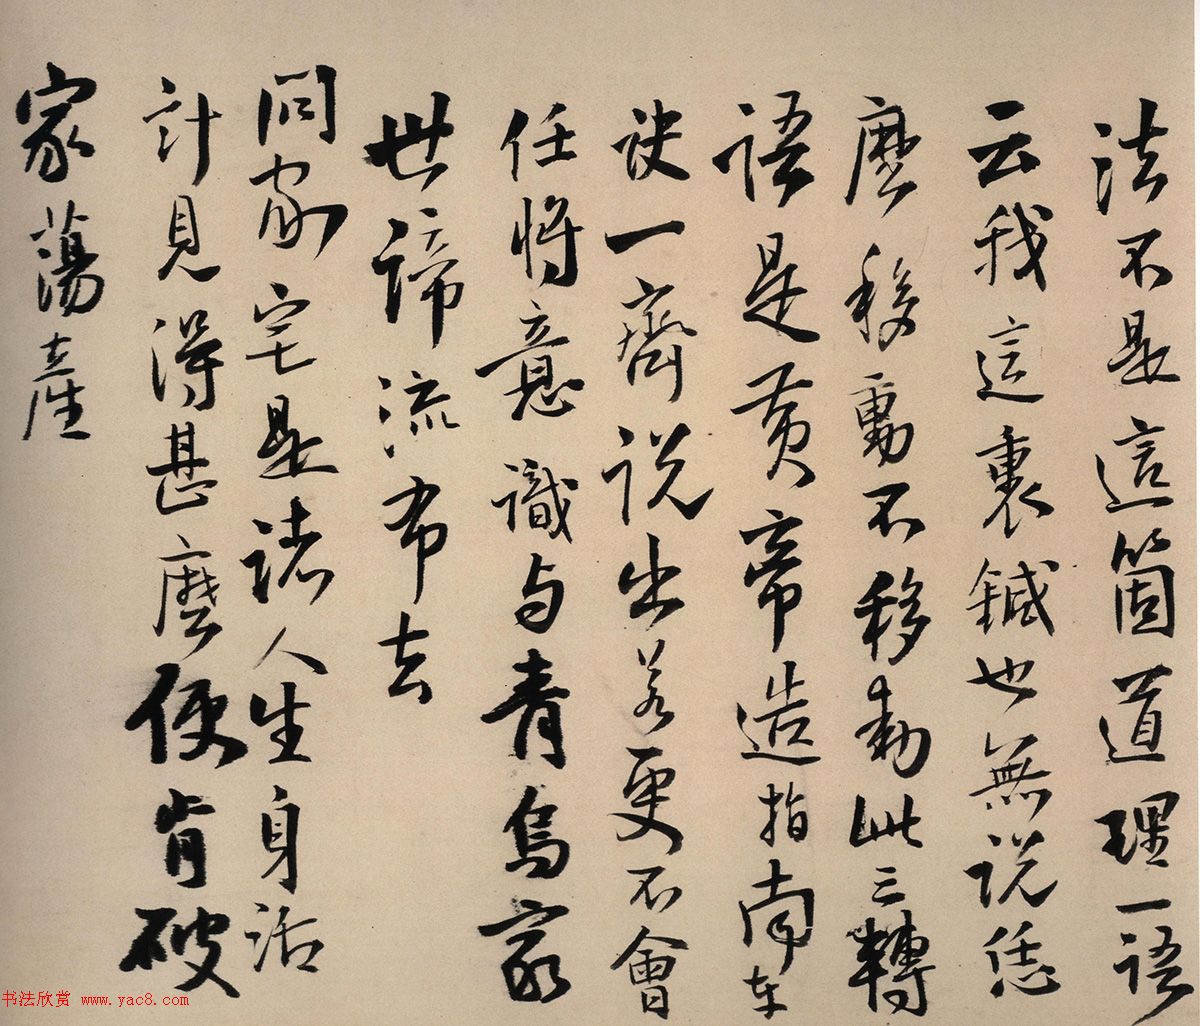 法不是這箇道理一語
云我這裏鍼也無説恁
麼移動不移動此三轉
語是黄帝造指南車
訣一齊説出若更不會
任將意識与青烏家
世諦流布去
問家宅是諸人生身活
計見得甚麼便肯破
家蕩產
书法欣赏 www.yac8.com